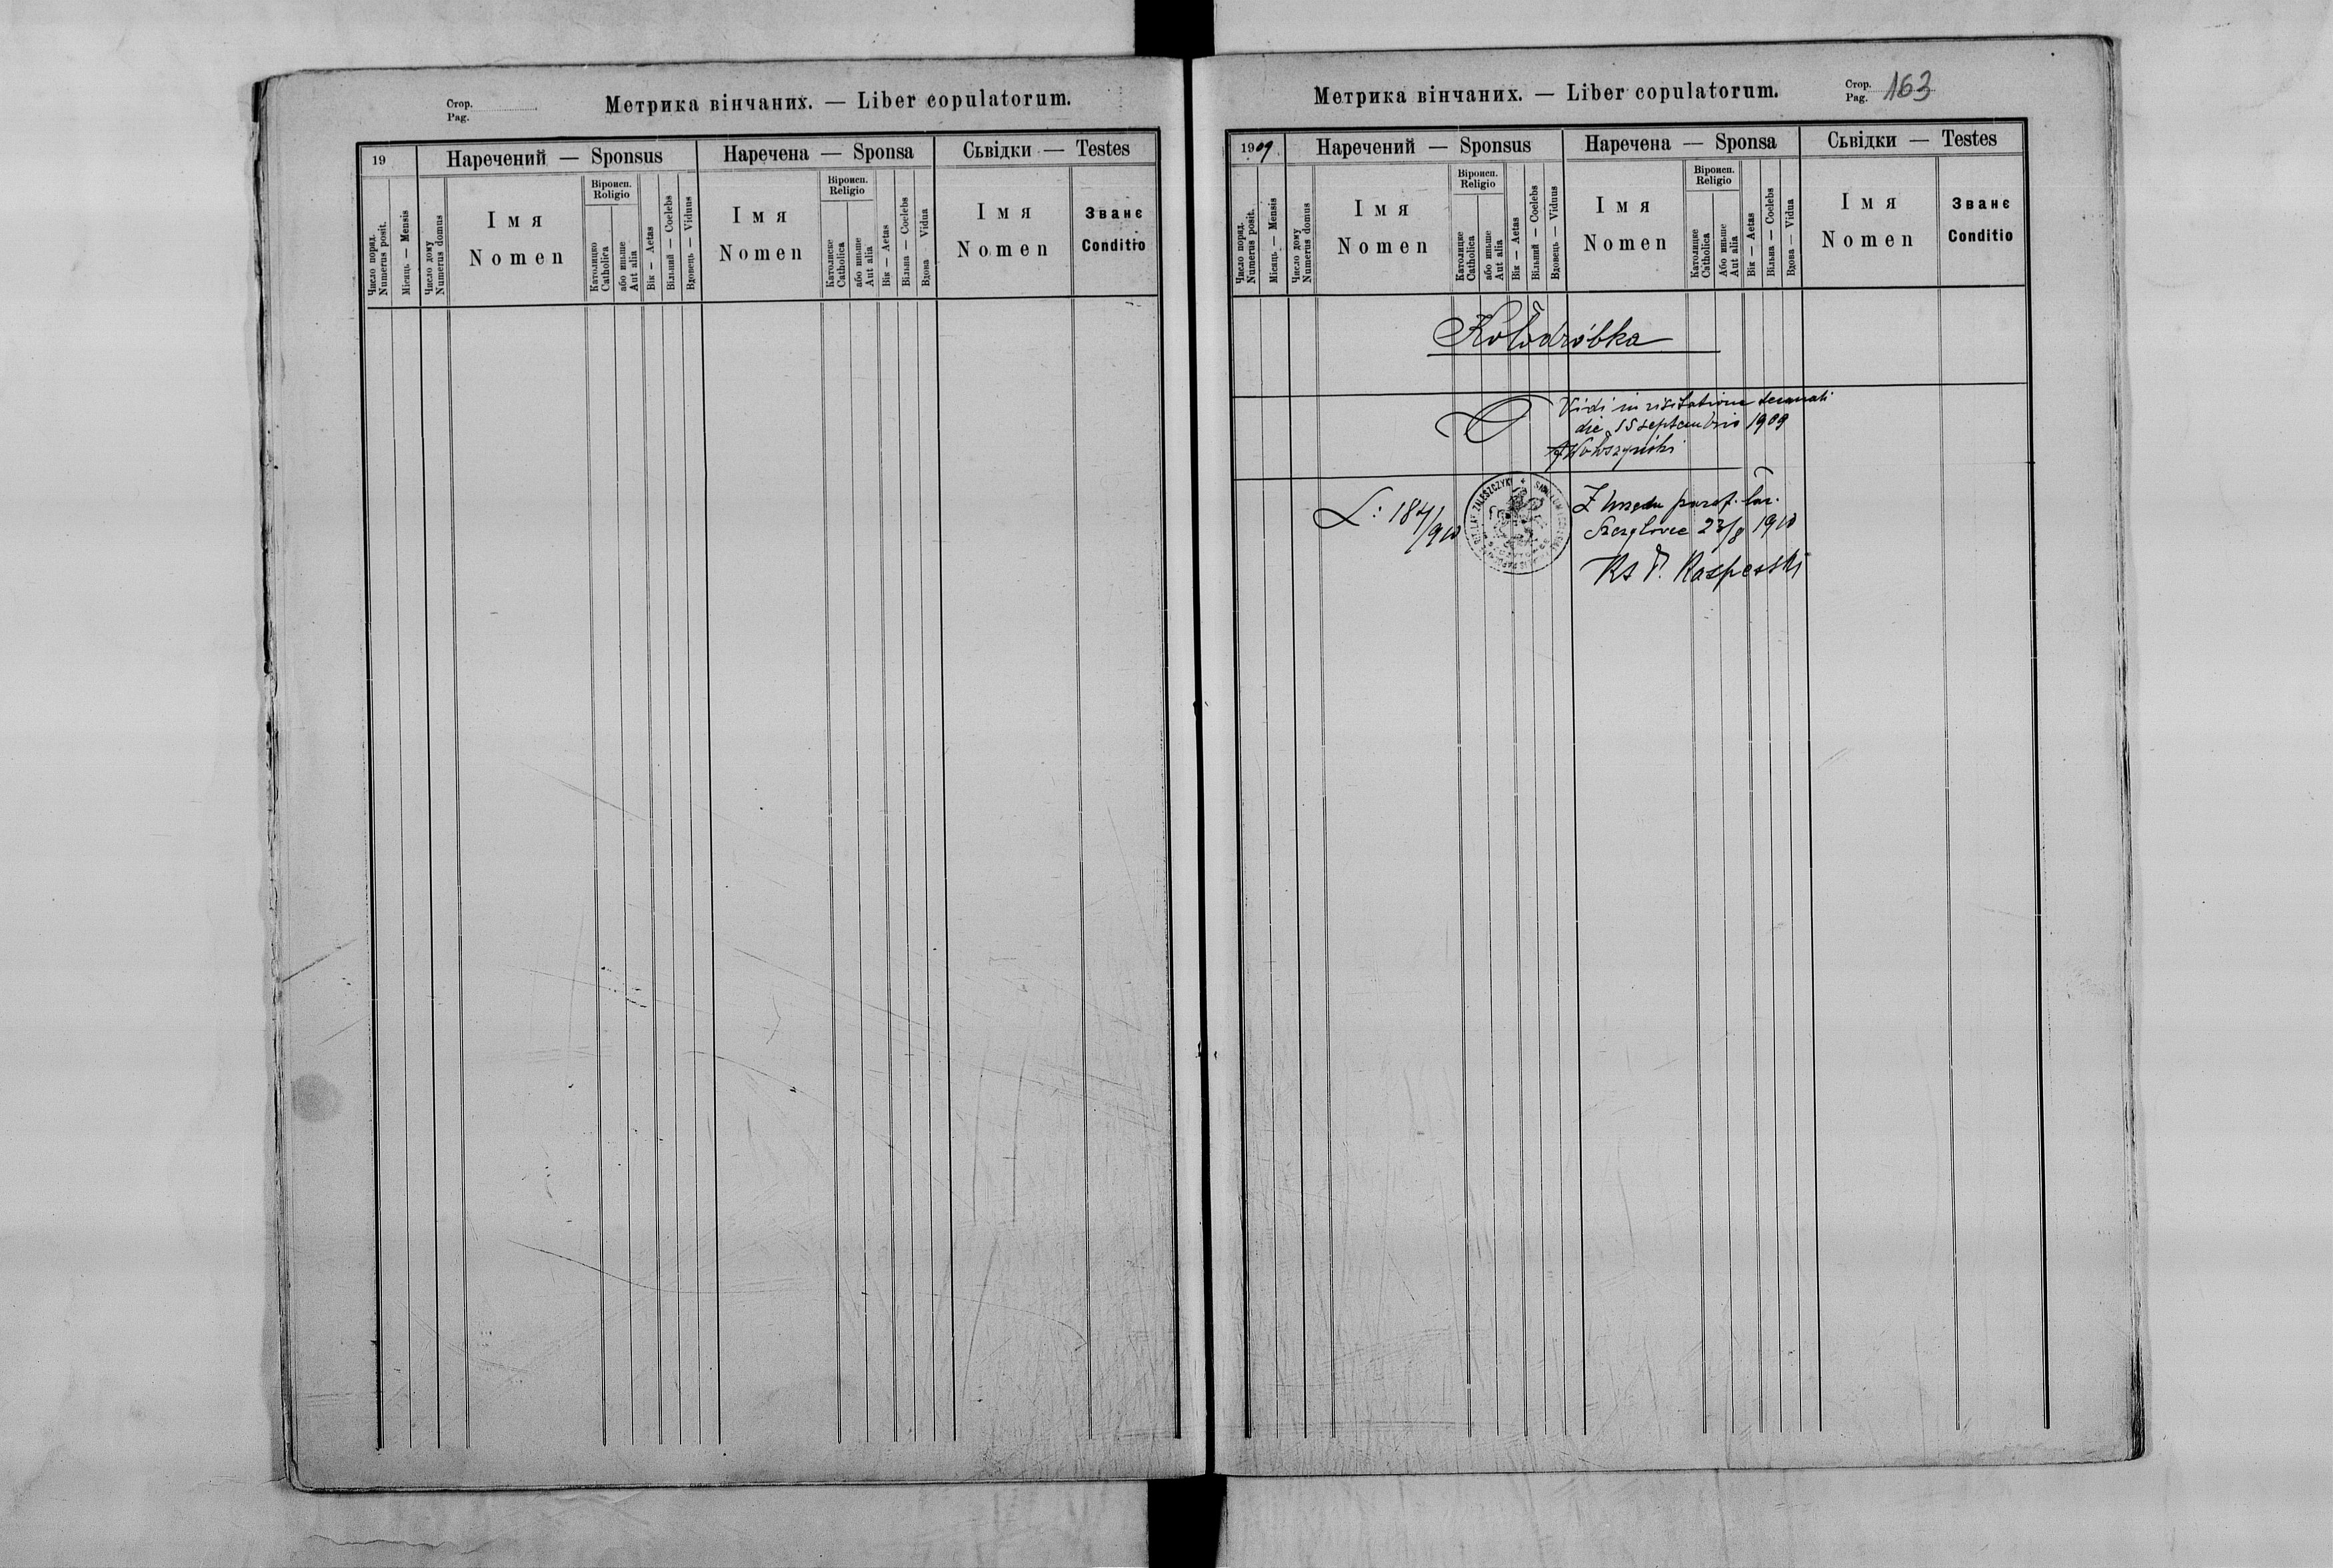 Стор.
Pag.
Метрика вінчаних. — Liber copulatorum.
19
Наречений — Sponsus
Наречена — Sponsa
Сьвідки — Testes
Число поряд.
Numerus posit.
Місяць — Mensis
Число дому
Numerus domus
Імя
Nomen
Віроисп.
Roligio
Католицко
Catholica
або иньше
Aut alia
Вік — Aetas
Вільний — Coelebs
Вдовець — Viduus
Імя
Nomen
Віроисп.
Religio
Католиске
Catholica
або иньше
Aut alia
Вік — Aetas
Вільна — Coelebs
Вдова Vidua
Імя
Nomen
Званє
Conditio
Метрика вінчаних. — Liber copulatorum.
Стор.
Pag. 163
1909.
Наречений — Sponsus
Наречена — Sponsa
Сьвідки — Testes
Число поряд.
Numerus posit.
Місяць — Mensis
Число дому
Numerus domus
Імя
Nomen
Віроисп.
Religio
Католицке
Catholica
або иньше
Aut alia
Вік — Aetas
Вільний — Coelebs
Вдовець — Viduus
Імя
Nomen
Віроисп.
Religio
Католицке
Catholica
Або иньше
Aut alia
Вік — Aetas
Вільна — Coelebs
Вдова — Vidua
Імя
Nomen
Званє
Conditio
Kołodróbka
Vidi in visitatione decanali
die 15 septembris 1909
L: 184/910
Z urzędu paraf. łac.
23/8 1910
Ks P.